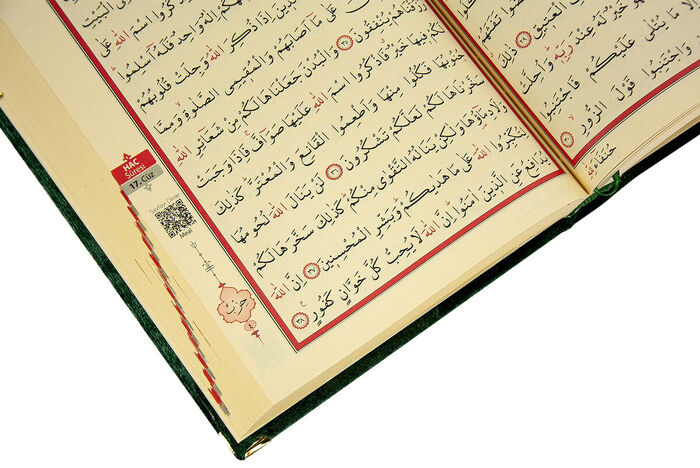 الْعَتِيقِ ﴿٢٩﴾ ذٰلِكَ
خَيْرٌ لَهُ عِنْدَ رَبِّهِ وَاُحِلَّتْ
مَا يُتْلٰى عَلَيْكُمْ فَاجْتَنِبُوا
وَاجْتَنِبُوا قَوْلَ الزُّورِ ﴿٣٠﴾
حُنَفَاءَ لِلّٰهِ
اِلٰهٌ وَاحِدٌ فَلَهُ اَسْلِمُوا
الَّذِينَ اِذَا ذُكِرَ اللّٰهُ وَجِلَتْ قُلُوبُهُمْ
عَلٰى مَا اَصَابَهُمْ وَالْمُقِيمِي الصَّلٰوةِ وَمِمَّا
رَزَقْنَاهُمْ يُنْفِقُونَ ﴿٣٥﴾ وَالْبُدْنَ جَعَلْنَاهَا لَكُمْ مِنْ شَعَائِرِ اللّٰهِ
لَكُمْ فِيهَا خَيْرٌ فَاذْكُرُوا اسْمَ اللّٰهِ عَلَيْهَا صَوَافَّ فَاِذَا وَجَبَتْ
جُنُوبُهَا فَكُلُوا مِنْهَا وَاَطْعِمُوا الْقَانِعَ وَالْمُعْتَرَّ كَذٰلِكَ
سَخَّرْنَاهَا لَكُمْ لَعَلَّكُمْ تَشْكُرُونَ ﴿٣٦﴾ لَنْ يَنَالَ اللّٰهَ لُحُومُهَا
وَلَا دِمَاؤُهَا وَلٰكِنْ يَنَالُهُ التَّقْوٰى مِنْكُمْ كَذٰلِكَ سَخَّرَهَا لَكُمْ
لِتُكَبِّرُوا اللّٰهَ عَلٰى مَا هَدٰيكُمْ وَبَشِّرِ الْمُحْسِنِينَ ﴿٣٧﴾ اِنَّ اللّٰهَ
يُدَافِعُ عَنِ الَّذِينَ اٰمَنُوا اِنَّ اللّٰهَ لَا يُحِبُّ كُلَّ خَوَّانٍ كَفُورٍ ﴿٣٨﴾
HAC
Sûresi
17. Cüz
Meal
حزب